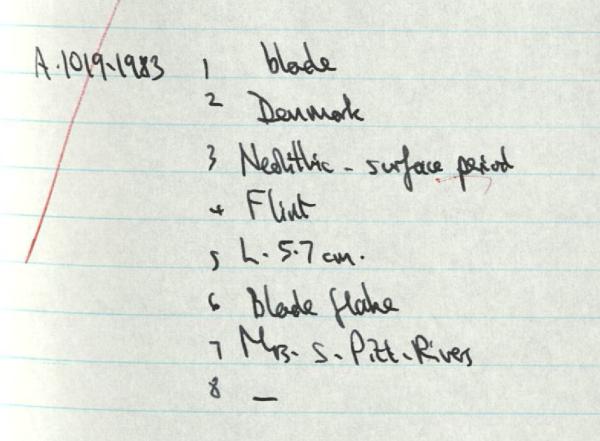 A.1019.1983 1 blade
2 Denmark
3 Neolithic - surface period
4 Flint
5 L. 5.7 cm.
6 Blade flake
7 Mrs. S. Pitt-Rivers
8 —